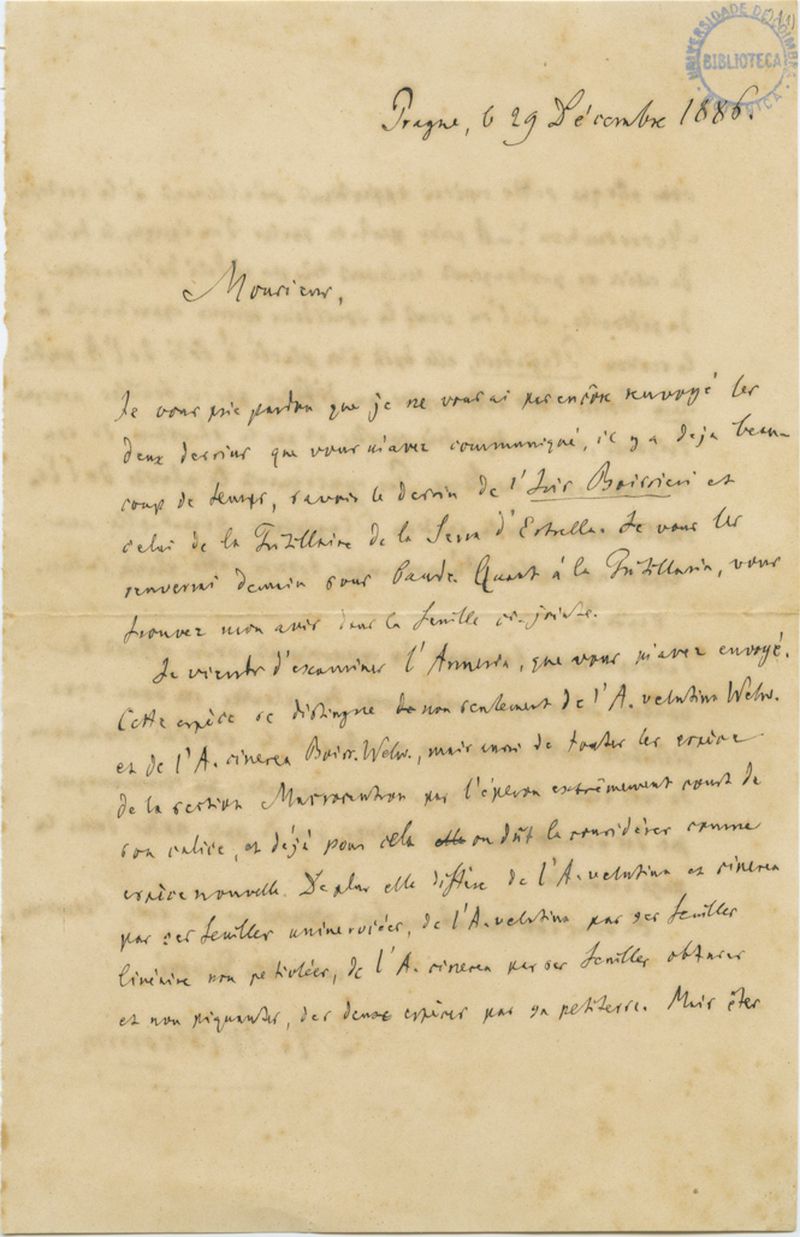 UNIVERSIDADE DE COIMBRA
BIBLIOTECA
BOTANICA
Prague, le 29 Décembre 1886.
Monsieur,
Je vous prie pardon que je ne vous ai pas encôre renvoyé les
deux dessins que vous m'avez communiqué, il y a deja beau-
coup de temps, savoir le dessin de l'Iris Boissieri et
celui de la Fritillaire de la Serra d'Estrella. Je vous les
renverrai demain sous bande. Quant à la Fritillaria, vous
trouvez mon avis dans la feuille ci-jointe.
Je viens d'examiner l'Armeria, que vous m'avez envoyé.
Cette espèce se distingue non seulement de l'A. velutina Welw.
et de l'A. cinerea Boiss. Welw., mais aussi de toutes les espèces
de la section Macrocentron par l'éperon extrêmement court de
son calice, et déjà pour cela elle on doit la considérer comme
espèce nouvelle. De plus elle diffère de l'A. velutina et cinerea
par ses feuilles uninerviées, de l'A. velutina par ses feuilles
linéaire non petiolées, de l'A. cinerea par ses feuilles obtuses
et non piquantes, des deux espèces par sa petitesse. Mais êtes